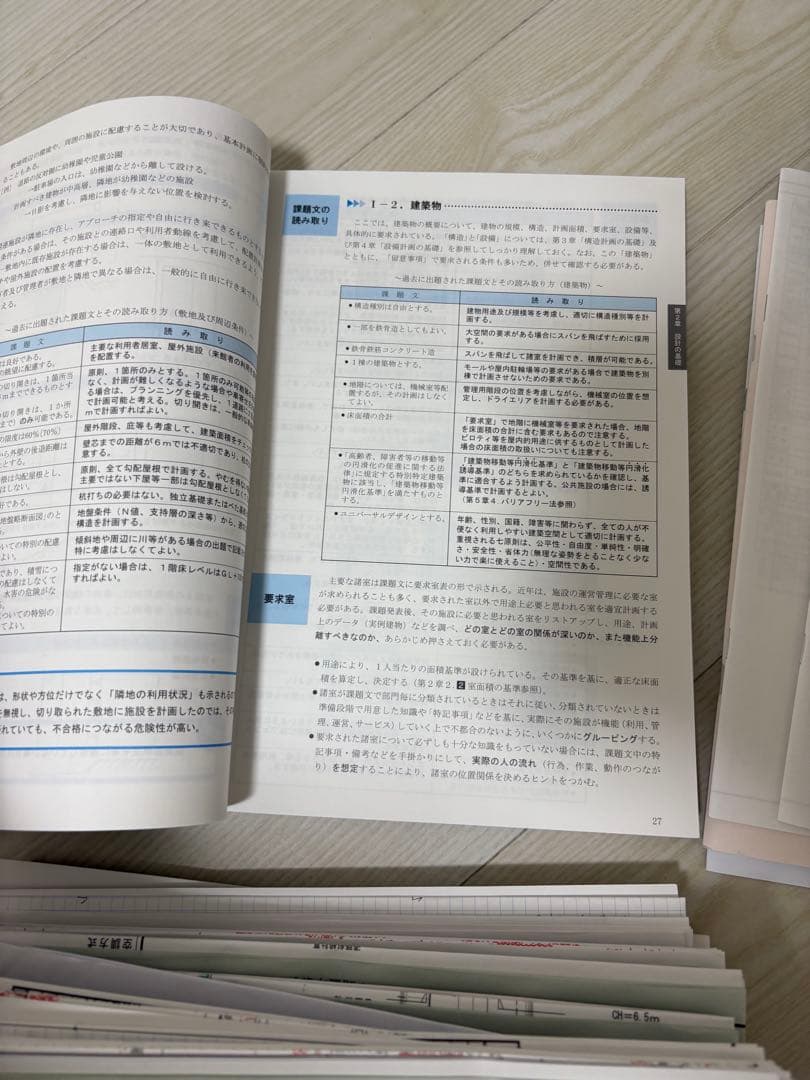 敷地周辺の環境や、周囲の施設に配慮することが大切であり、基本計画に
ることもある。
(例) 道路の反対側に幼稚園や児童公園
―駐車場の入口は、幼稚園などから離して設ける。
計画すべき建物が中高層、隣地が幼稚園などの施設
―日影を考慮し、隣地に影響を与えない位置を検討する。
施設が隣地に存在し、アプローチの指定や自由に行き来できるものとす
条件がある場合は、その施設との連絡口や利用者動線を考慮して、配置
敷地内に既存施設が存在する場合は、一体の敷地として利用できるよう
や屋外施設の配置を考慮する。
者及び管理者が敷地と隣地で異なる場合は、一般的に自由に行き来
える。
～過去に出題された課題文とその読み取り方(敷地及び周辺条件)～
課題文
読み取り
は良好である。
の眺望に配慮する。
主要な利用者居室、屋外施設(来館者の利用
を配置する。
の切り開きは、1箇所当
mまでできるものとす
原則、1箇所のみとする。1箇所のみ可能
なく、計画が難しくなるような場合や
る場合は、プランニングを優先し、1道路に
mで計画すればよい。
の切り開きは、1か所
まで)のみ可能である。
計画可能と考える。切り開きは、一般的な
の限度は60%(70%)
屋外階段、庇等も考慮して、建築面積をチェ
から外壁の後退距離は
とする。
壁芯までの距離が6mでは不適切であり、
根は勾配屋根とし、
はしない。
原則、全て勾配屋根で計画する。やむを得
主要ではない下屋等一部は勾配屋根としなく
杭打ちの必要はない。独立基礎またはべた基礎
地盤略断面図」のと
地盤条件(N値、支持層の深さ等)から、適
構造を計画する。
ついての特別の配慮
傾斜地や周辺に川等がある場合の出題で記
特に考慮はしなくてよい。
であり、積雪につ
の配慮はしなくて
水害の危険がな
指定がない場合は、1階床レベルはGL+
すればよい。
についての特別の
てよい。
は、形状や方位だけでなく「隣地の利用状況」も示される
を無視し、切り取られた敷地に施設を計画したのでは、その
れていても、不合格につながる危険性が高い。
課題文の
読み取り
1－2．建築物
ここでは、建築物の概要について、建物の規模、構造、計画面積、要求室、設備等、
具体的に要求されている。「構造」と「設備」については、第3章「構造計画の基礎」及
び第4章「設備計画の基礎」を参照してしっかり理解しておく。なお、この「建築物」
とともに、「留意事項」で要求される条件も多いため、併せて確認する必要がある。
～過去に出題された課題文とその読み取り方(建築物)～
課題文
読み取り
●構造種別は自由とする。
建物用途及び規模等を考慮し、適切に構造種別等を計
画する。
●一部を鉄骨造としてもよい。
大空間の要求がある場合にスパンを飛ばすために採用
する。
●鉄骨鉄筋コンクリート造
スパンを飛ばして諸室を計画でき、積層が可能である。
●1棟の建築物とする。
モールや屋内駐輪場等の要求がある場合で建築物を別
棟で計画させないための要求である。
●地階については、機械室等配
置するが、その計画はしなくて
よい。
管理用階段の位置を考慮しながら、機械室の位置を想
定し、ドライエリアを計画する必要がある。
●床面積の合計
「要求室」で地階に機械室等を要求された場合、地階
を床面積の合計に含む要求もあるので注意する。
ピロティ等を屋内的用途に供するものとして計画した
場合の床面積の取扱いについても注意する。
●「高齢者、障害者等の移動等
の円滑化の促進に関する法
律」に規定する特別特定建築
物に該当し、「建築物移動等
円滑化基準」を満たすものと
する。
「建築物移動等円滑化基準」と「建築物移動等円滑化
誘導基準」のどちらを求められているかを確認し、基
準に適合するよう計画する。公共施設の場合には、誘
導基準で計画するとよい。
(第5章4．バリアフリー法参照)
●ユニバーサルデザインとする。
年齢、性別、国籍、障害等に関わらず、全ての人が不
便なく利用しやすい建築空間として適切に計画する。
重視される七原則は、公平性・自由度・単純性・明確
さ・安全性・省体力(無理な姿勢をとることなく少な
い力で楽に使えること)・空間性である。
第2章 設計の基礎
要求室
主要な諸室は課題文に要求室表の形で示される。近年は、施設の運営管理に必要な室
が求められることも多く、要求された室以外で用途上必要と思われる室を適宜計画する
必要がある。課題発表後、その施設に必要と思われる室をリストアップし、用途、計画
上のデータ(実例建物)などを調べ、どの室とどの室の関係が深いのか、また機能上分
離すべきなのか、あらかじめ押さえておく必要がある。
●用途により、1人当たりの面積基準が設けられている。その基準を基に、適正な床面
積を算定し、決定する(第2章2．2室面積の基準参照)。
●諸室が課題文で部門毎に分類されているときはそれに従い、分類されていないときは
準備段階で用意した知識や「特記事項」などを基に、実際にその施設が機能(利用、管
理、運営、サービス)していく上で不都合のないように、いくつかにグルーピングする。
●要求された諸室について必ずしも十分な知識をもっていない場合には、課題文中の特
記事項・備考などを手掛かりにして、実際の人の流れ(行為、作業、動作のつなが
り)を想定することにより、諸室の位置関係を決めるヒントをつかむ。
27
空調方式
CH=6.5m